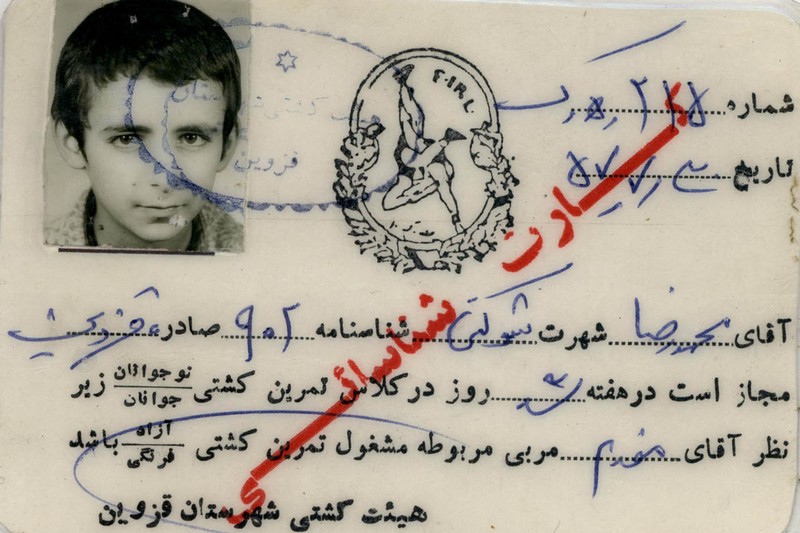 F.I.R.L.
هیئت کشتی شهرستان
قزوین
شماره ۲۱۵
تاریخ ۵۷٫۷٫۳
کارت شناسائی
آقای محمدرضا شهرت شوکتی شناسنامه ۹۰۲ صادره قزوین
مجاز است در هفته ۳ روز در کلاس تمرین کشتی نوجوانان جوانان زیر
نظر آقای مربی مربوطه مشغول تمرین کشتی آزاد فرنگی باشد
هیئت کشتی شهرستان قزوین